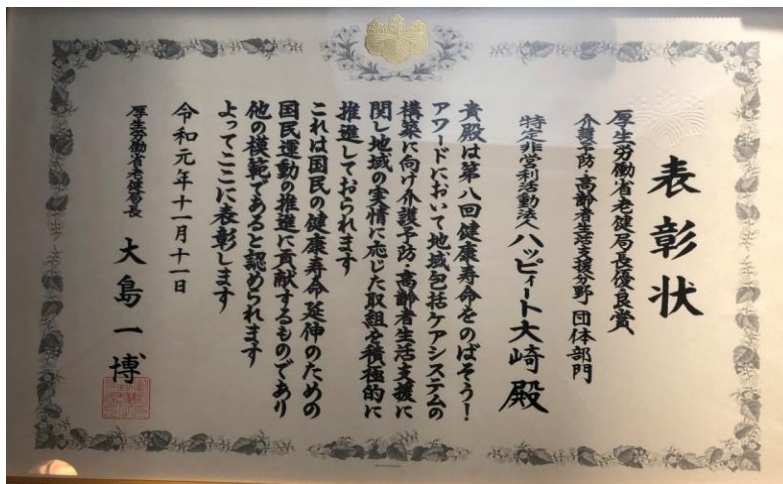 表彰状
厚生労働省老健局長優良賞
介護予防・高齢者生活支援分野 団体部門
特定非営利活動法人ハッピィート大崎殿
貴殿は第八回健康寿命をのばそう!
アワードにおいて地域包括ケアシステムの
構築に向け介護予防・高齢者生活支援に
関し地域の実情に応じた取組を積極的に
推進しておられます
これは国民の健康寿命延伸のための
国民運動の推進に貢献するものであり
他の模範であると認められます
よってここに表彰します
令和元年十一月十一日
厚生労働省老健局長 大島一博